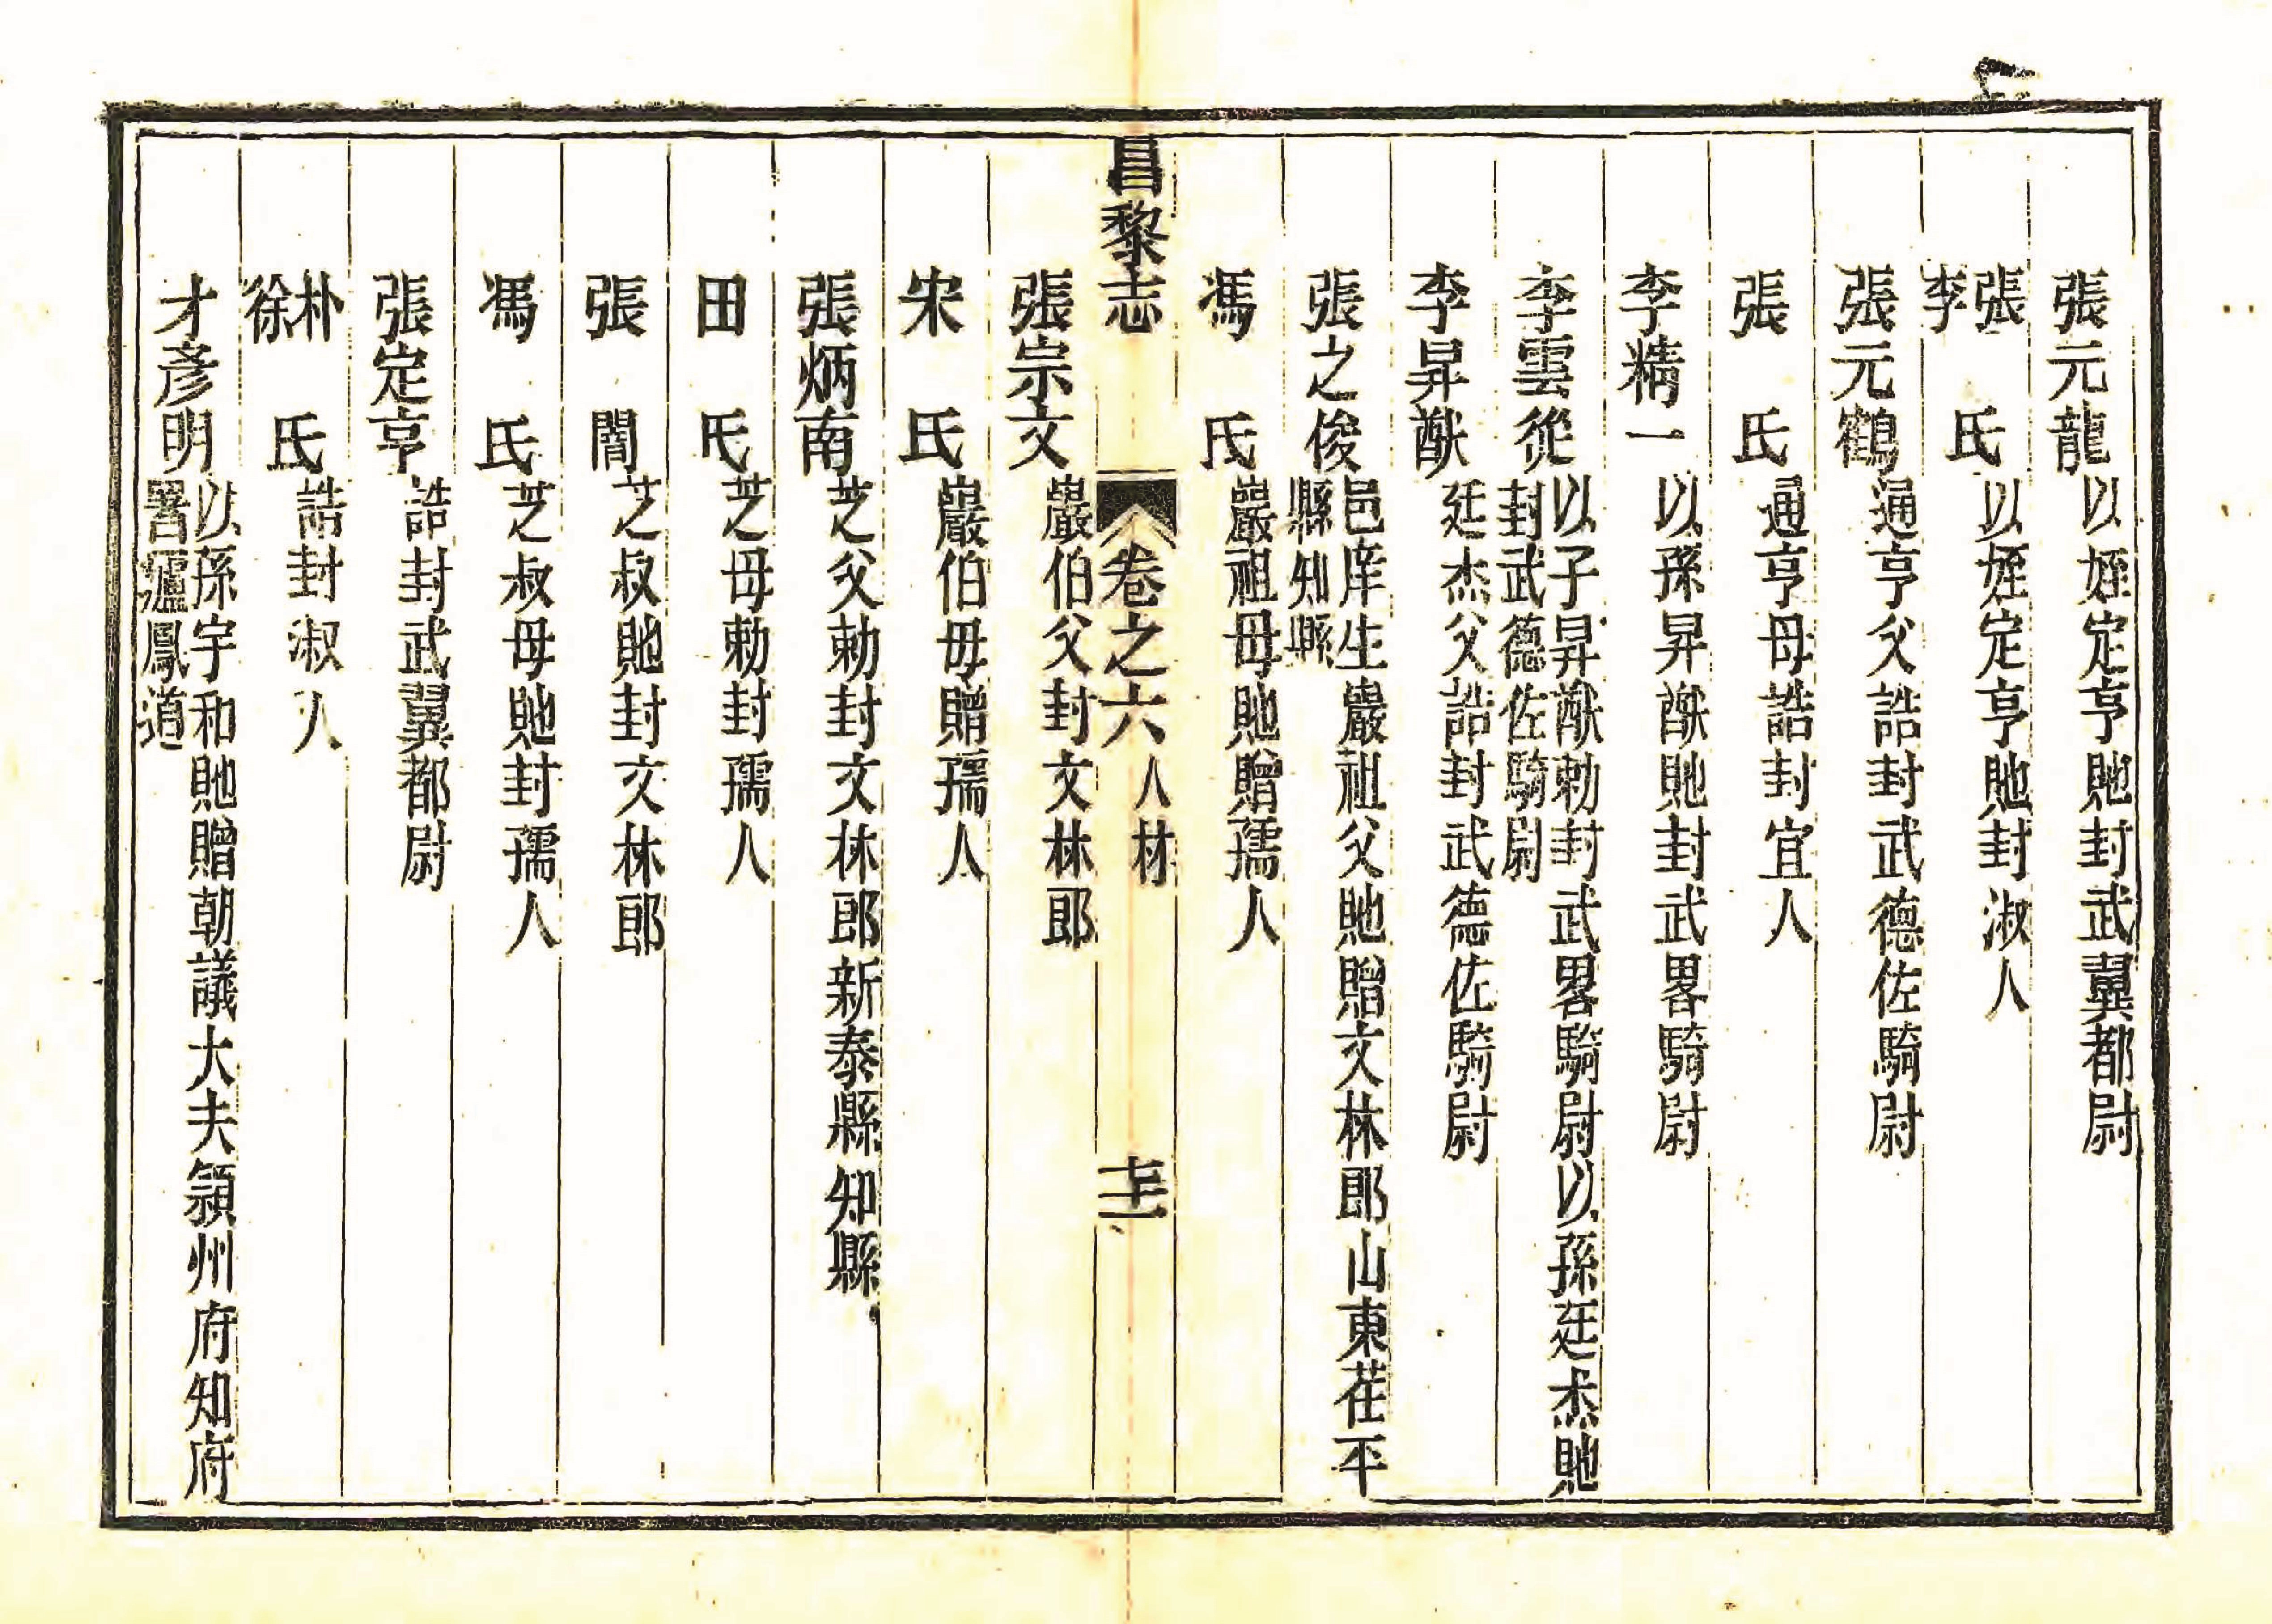 張元龍以姪定亨貤封武翼都尉
張李氏以姪定亨貤封淑人
張元鶴通亨父誥封武德佐騎尉
張氏通亨母誥封宜人
李精一以孫昇猷貤封武畧騎尉
李雲從以子昇猷勅封武畧騎尉以孫廷杰貤
封武德佐騎尉
李昇猷廷杰父誥封武德佐騎尉
張之俊邑庠生巖祖父貤贈文林郎山東茌平
縣知縣
馮氏巖祖母貤贈孺人
昌黎志 卷之六 人材
張宗文巖伯父封文林郎
宋氏巖伯母贈孺人
張炳南芝父勅封文林郎新泰縣知縣
田氏芝母勅封孺人
張闇芝叔貤封文林郎
馮氏芝叔母貤封孺人
張定亨誥封武翼都尉
朴徐氏誥封淑人
才彥明以孫宇和貤贈朝議大夫潁州府知府
署廬鳳道